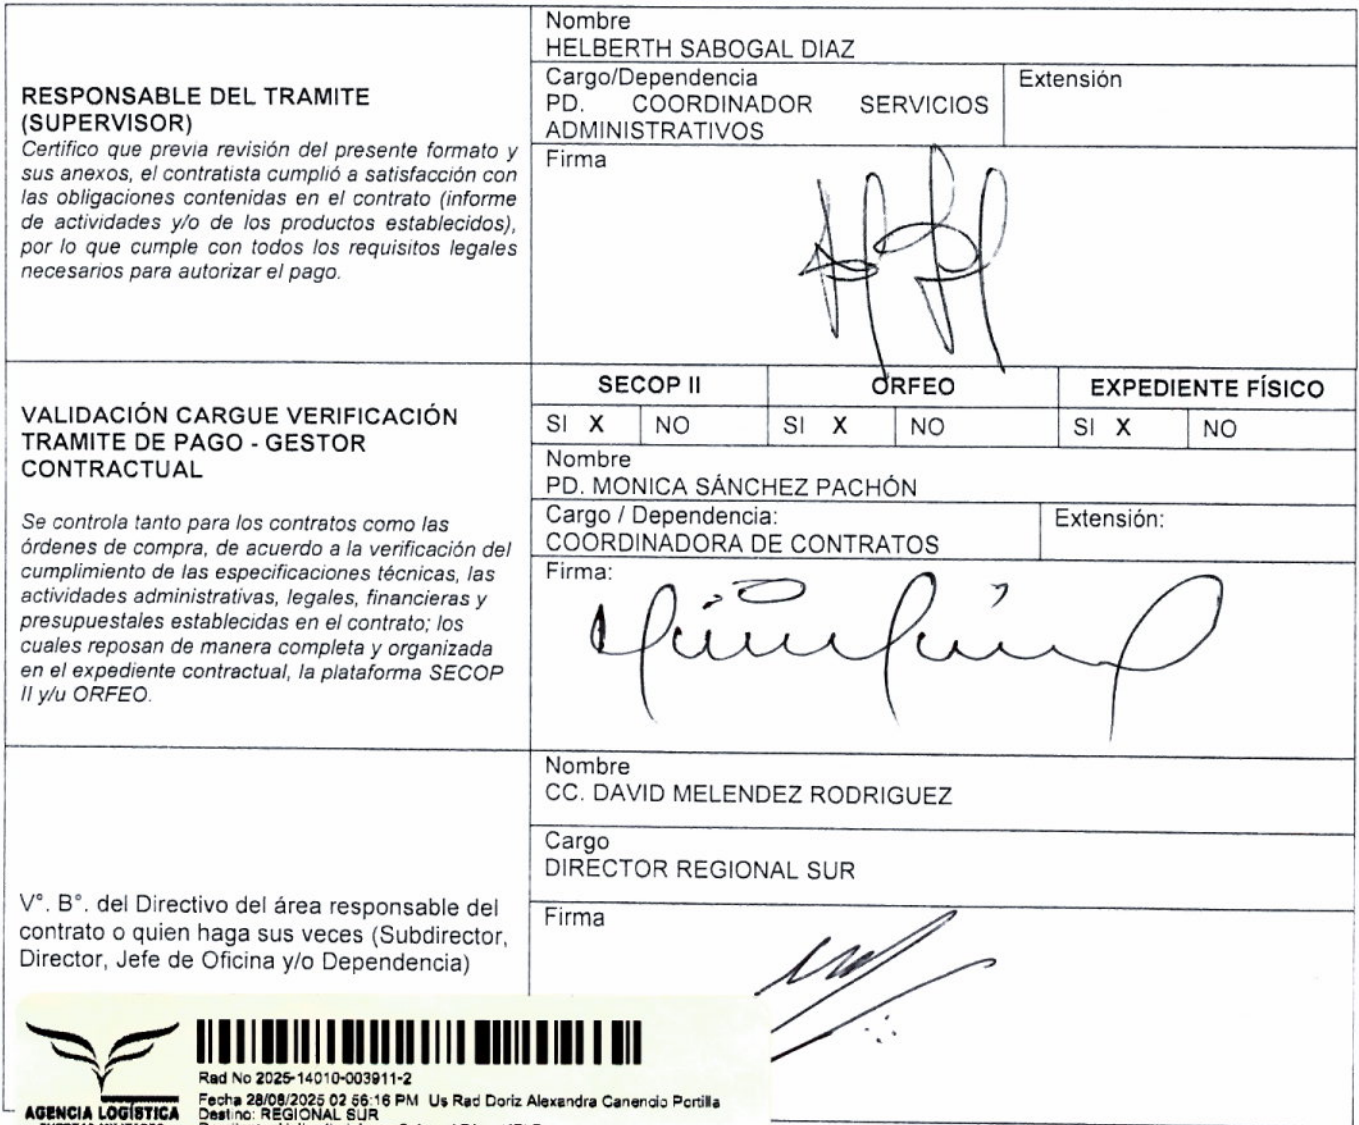 RESPONSABLE DEL TRAMITE
(SUPERVISOR)
Certifico que previa revisión del presente formato y
sus anexos, el contratista cumplió a satisfacción con
las obligaciones contenidas en el contrato (informe
de actividades y/o de los productos establecidos),
por lo que cumple con todos los requisitos legales
necesarios para autorizar el pago.
Nombre
HELBERTH SABOGAL DIAZ
Cargo/Dependencia
PD. COORDINADOR SERVICIOS
ADMINISTRATIVOS
Extensión
Firma
VALIDACIÓN CARGUE VERIFICACIÓN
TRAMITE DE PAGO - GESTOR
CONTRACTUAL
Se controla tanto para los contratos como las
órdenes de compra, de acuerdo a la verificación del
cumplimiento de las especificaciones técnicas, las
actividades administrativas, legales, financieras y
presupuestales establecidas en el contrato; los
cuales reposan de manera completa y organizada
en el expediente contractual, la plataforma SECOP
II y/u ORFEO.
SECOP II ORFEO EXPEDIENTE FÍSICO
SI X NO SI X NO SI X NO
Nombre
PD. MONICA SÁNCHEZ PACHÓN
Cargo / Dependencia:
COORDINADORA DE CONTRATOS
Extensión:
Firma:
V°. B°. del Directivo del área responsable del
contrato o quien haga sus veces (Subdirector,
Director, Jefe de Oficina y/o Dependencia)
Nombre
CC. DAVID MELENDEZ RODRIGUEZ
Cargo
DIRECTOR REGIONAL SUR
Firma
AGENCIA LOGÍSTICA
Rad No 2025-14010-003911-2
Fecha 28/08/2025 02 56:16 PM Us Rad Doriz Alexandra Canencio Portilla
Destino: REGIONAL SUR